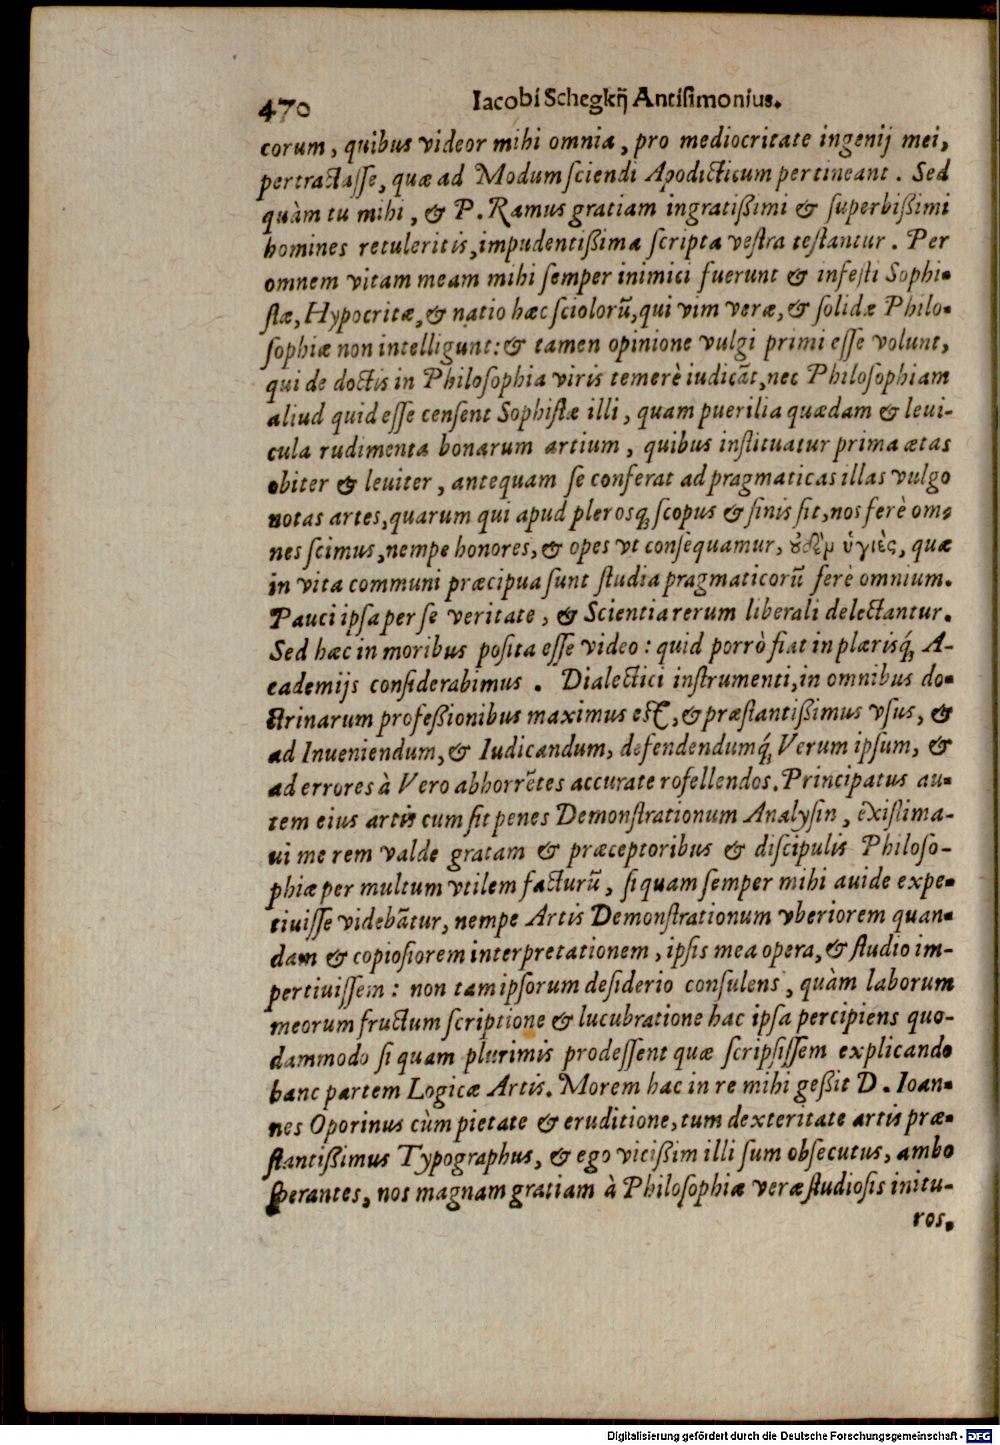 470 Iacobi Schegkij Antisimonius.
corum, quibus videor mihi omnia, pro mediocritate ingenij mei,
pertractasse, quæ ad Modum sciendi Apodicticum pertineant. Sed
quàm tu mihi, & P. Ramus gratiam ingratißimi & superbißimi
homines retuleritis, impudentißima scripta vestra testantur. Per
omnem vitam meam mihi semper inimici fuerunt & infesti Sophi-
stæ, Hypocritæ, & natio hæc sciolorũ, qui vim veræ, & solidæ Philo-
sophiæ non intelligunt: & tamen opinione vulgi primi esse volunt,
qui de doctis in Philosophia viris temerè iudicãt, nec Philosophiam
aliud quid esse censent Sophistæ illi, quam puerilia quædam & leui-
cula rudimenta bonarum artium, quibus instituatur prima ætas
obiter & leuiter, antequam se conferat ad pragmaticas illas vulgo
notas artes, quarum qui apud plerosq; scopus & finis sit, nos ferè om-
nes scimus, nempe honores, & opes vt consequamur, ȣ̓δὲμ ὑγιὲς, quæ
in vita communi præcipua sunt studia pragmaticorũ ferè omnium.
Pauci ipsa per se veritate, & Scientia rerum liberali delectantur.
Sed hæc in moribus posita esse video: quid porrò fiat in plærisq́; A-
cademijs considerabimus. Dialectici instrumenti, in omnibus do-
ctrinarum profeßionibus maximus est, & præstantißimus vsus, &
ad Inueniendum, & Iudicandum, defendendumq́; Verum ipsum, &
ad errores à Vero abhorrẽtes accurate rofellendos. Principatus au-
tem eius artis cum sit penes Demonstrationum Analysin, existima-
ui me rem valde gratam & præceptoribus & discipulis Philoso-
phiæ per multum vtilem facturũ, si quam semper mihi auide expe-
tiuisse videbãtur, nempe Artis Demonstrationum vberiorem quan-
dam & copiosiorem interpretationem, ipsis mea opera, & studio im-
pertiuissem: non tam ipsorum desiderio consulens, quàm laborum
meorum fructum scriptione & lucubratione hac ipsa percipiens quo-
dammodo si quam plurimis prodessent quæ scripsissem explicando
hanc partem Logicæ Artis. Morem hac in re mihi geßit D. Ioan-
nes Oporinus cùm pietate & eruditione, tum dexteritate artis præ-
stantißimus Typographus, & ego vicißim illi sum obsecutus, ambo
sperantes, nos magnam gratiam à Philosophiæ veræ studiosis initu-
ros.
Digitalisierung gefördert durch die Deutsche Forschungsgemeinschaft - DFG